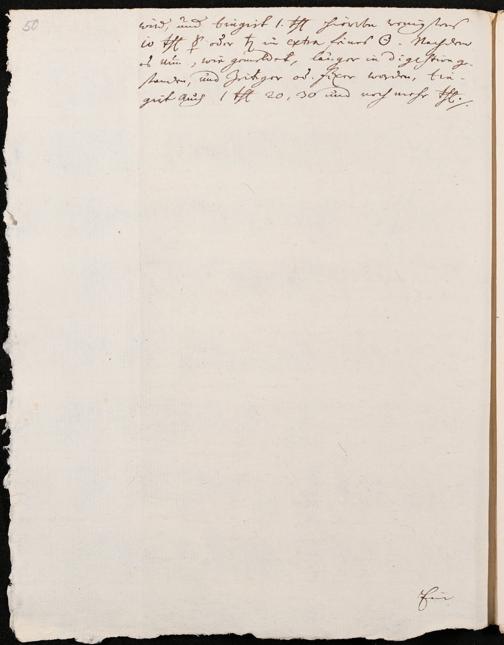 50
wird, und tingirt 1. ℔ hievon wenigstens
10 ℔ ☿ oder ♄ in extra feines ☉. Nachdem
es nun, wie gemeldet, länger in digestion ge-
standen, und zeitiger od. fixer worden, tin-
girt auch 1 ℔ 20, 30 und noch mehr ℔.
Ein